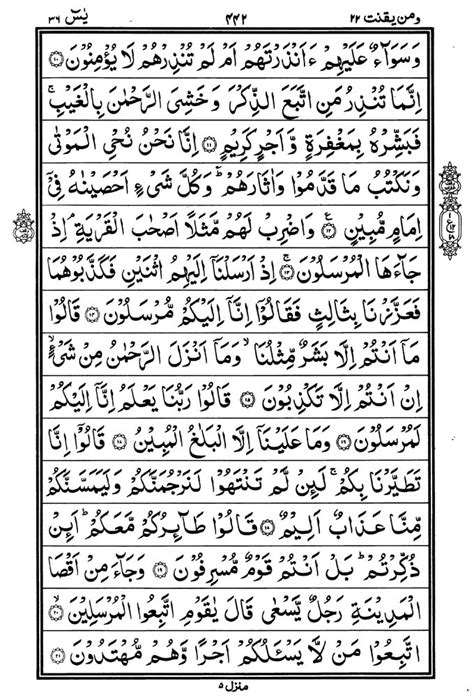 ومن یقنت ۲۲ ۴۴۲ یٰسٓ ۳۶
وَسَوَآءٌ عَلَيْهِمْ ءَاَنْذَرْتَهُمْ اَمْ لَمْ تُنْذِرْهُمْ لَا يُؤْمِنُوْنَ ۝۱۰
اِنَّمَا تُنْذِرُ مَنِ اتَّبَعَ الذِّكْرَ وَخَشِيَ الرَّحْمٰنَ بِالْغَيْبِ ۚ
فَبَشِّرْهُ بِمَغْفِرَةٍ وَّاَجْرٍ كَرِيْمٍ ۝۱۱ اِنَّا نَحْنُ نُحْيِ الْمَوْتٰى
وَنَكْتُبُ مَا قَدَّمُوْا وَاٰثَارَهُمْ ؕ وَكُلَّ شَيْءٍ اَحْصَيْنٰهُ فِيْۤ
اِمَامٍ مُّبِيْنٍ ۝۱۲ وَاضْرِبْ لَهُمْ مَّثَلًا اَصْحٰبَ الْقَرْيَةِ ۘ اِذْ
جَآءَهَا الْمُرْسَلُوْنَ ۝۱۳ اِذْ اَرْسَلْنَاۤ اِلَيْهِمُ اثْنَيْنِ فَكَذَّبُوْهُمَا
فَعَزَّزْنَا بِثَالِثٍ فَقَالُوْۤا اِنَّاۤ اِلَيْكُمْ مُّرْسَلُوْنَ ۝۱۴ قَالُوْا
مَاۤ اَنْتُمْ اِلَّا بَشَرٌ مِّثْلُنَا ۙ وَمَاۤ اَنْزَلَ الرَّحْمٰنُ مِنْ شَيْءٍ ۙ
اِنْ اَنْتُمْ اِلَّا تَكْذِبُوْنَ ۝۱۵ قَالُوْا رَبُّنَا يَعْلَمُ اِنَّاۤ اِلَيْكُمْ
لَمُرْسَلُوْنَ ۝۱۶ وَمَا عَلَيْنَاۤ اِلَّا الْبَلٰغُ الْمُبِيْنُ ۝۱۷ قَالُوْۤا اِنَّا
تَطَيَّرْنَا بِكُمْ ۚ لَئِنْ لَّمْ تَنْتَهُوْا لَنَرْجُمَنَّكُمْ وَلَيَمَسَّنَّكُمْ
مِّنَّا عَذَابٌ اَلِيْمٌ ۝۱۸ قَالُوْا طَآئِرُكُمْ مَّعَكُمْ ؕ اَئِنْ
ذُكِّرْتُمْ ؕ بَلْ اَنْتُمْ قَوْمٌ مُّسْرِفُوْنَ ۝۱۹ وَجَآءَ مِنْ اَقْصَا
الْمَدِيْنَةِ رَجُلٌ يَّسْعٰى قَالَ يٰقَوْمِ اتَّبِعُوا الْمُرْسَلِيْنَ ۝۲۰
اتَّبِعُوْا مَنْ لَّا يَسْـَٔلُكُمْ اَجْرًا وَّهُمْ مُّهْتَدُوْنَ ۝۲۱
منزل ۵